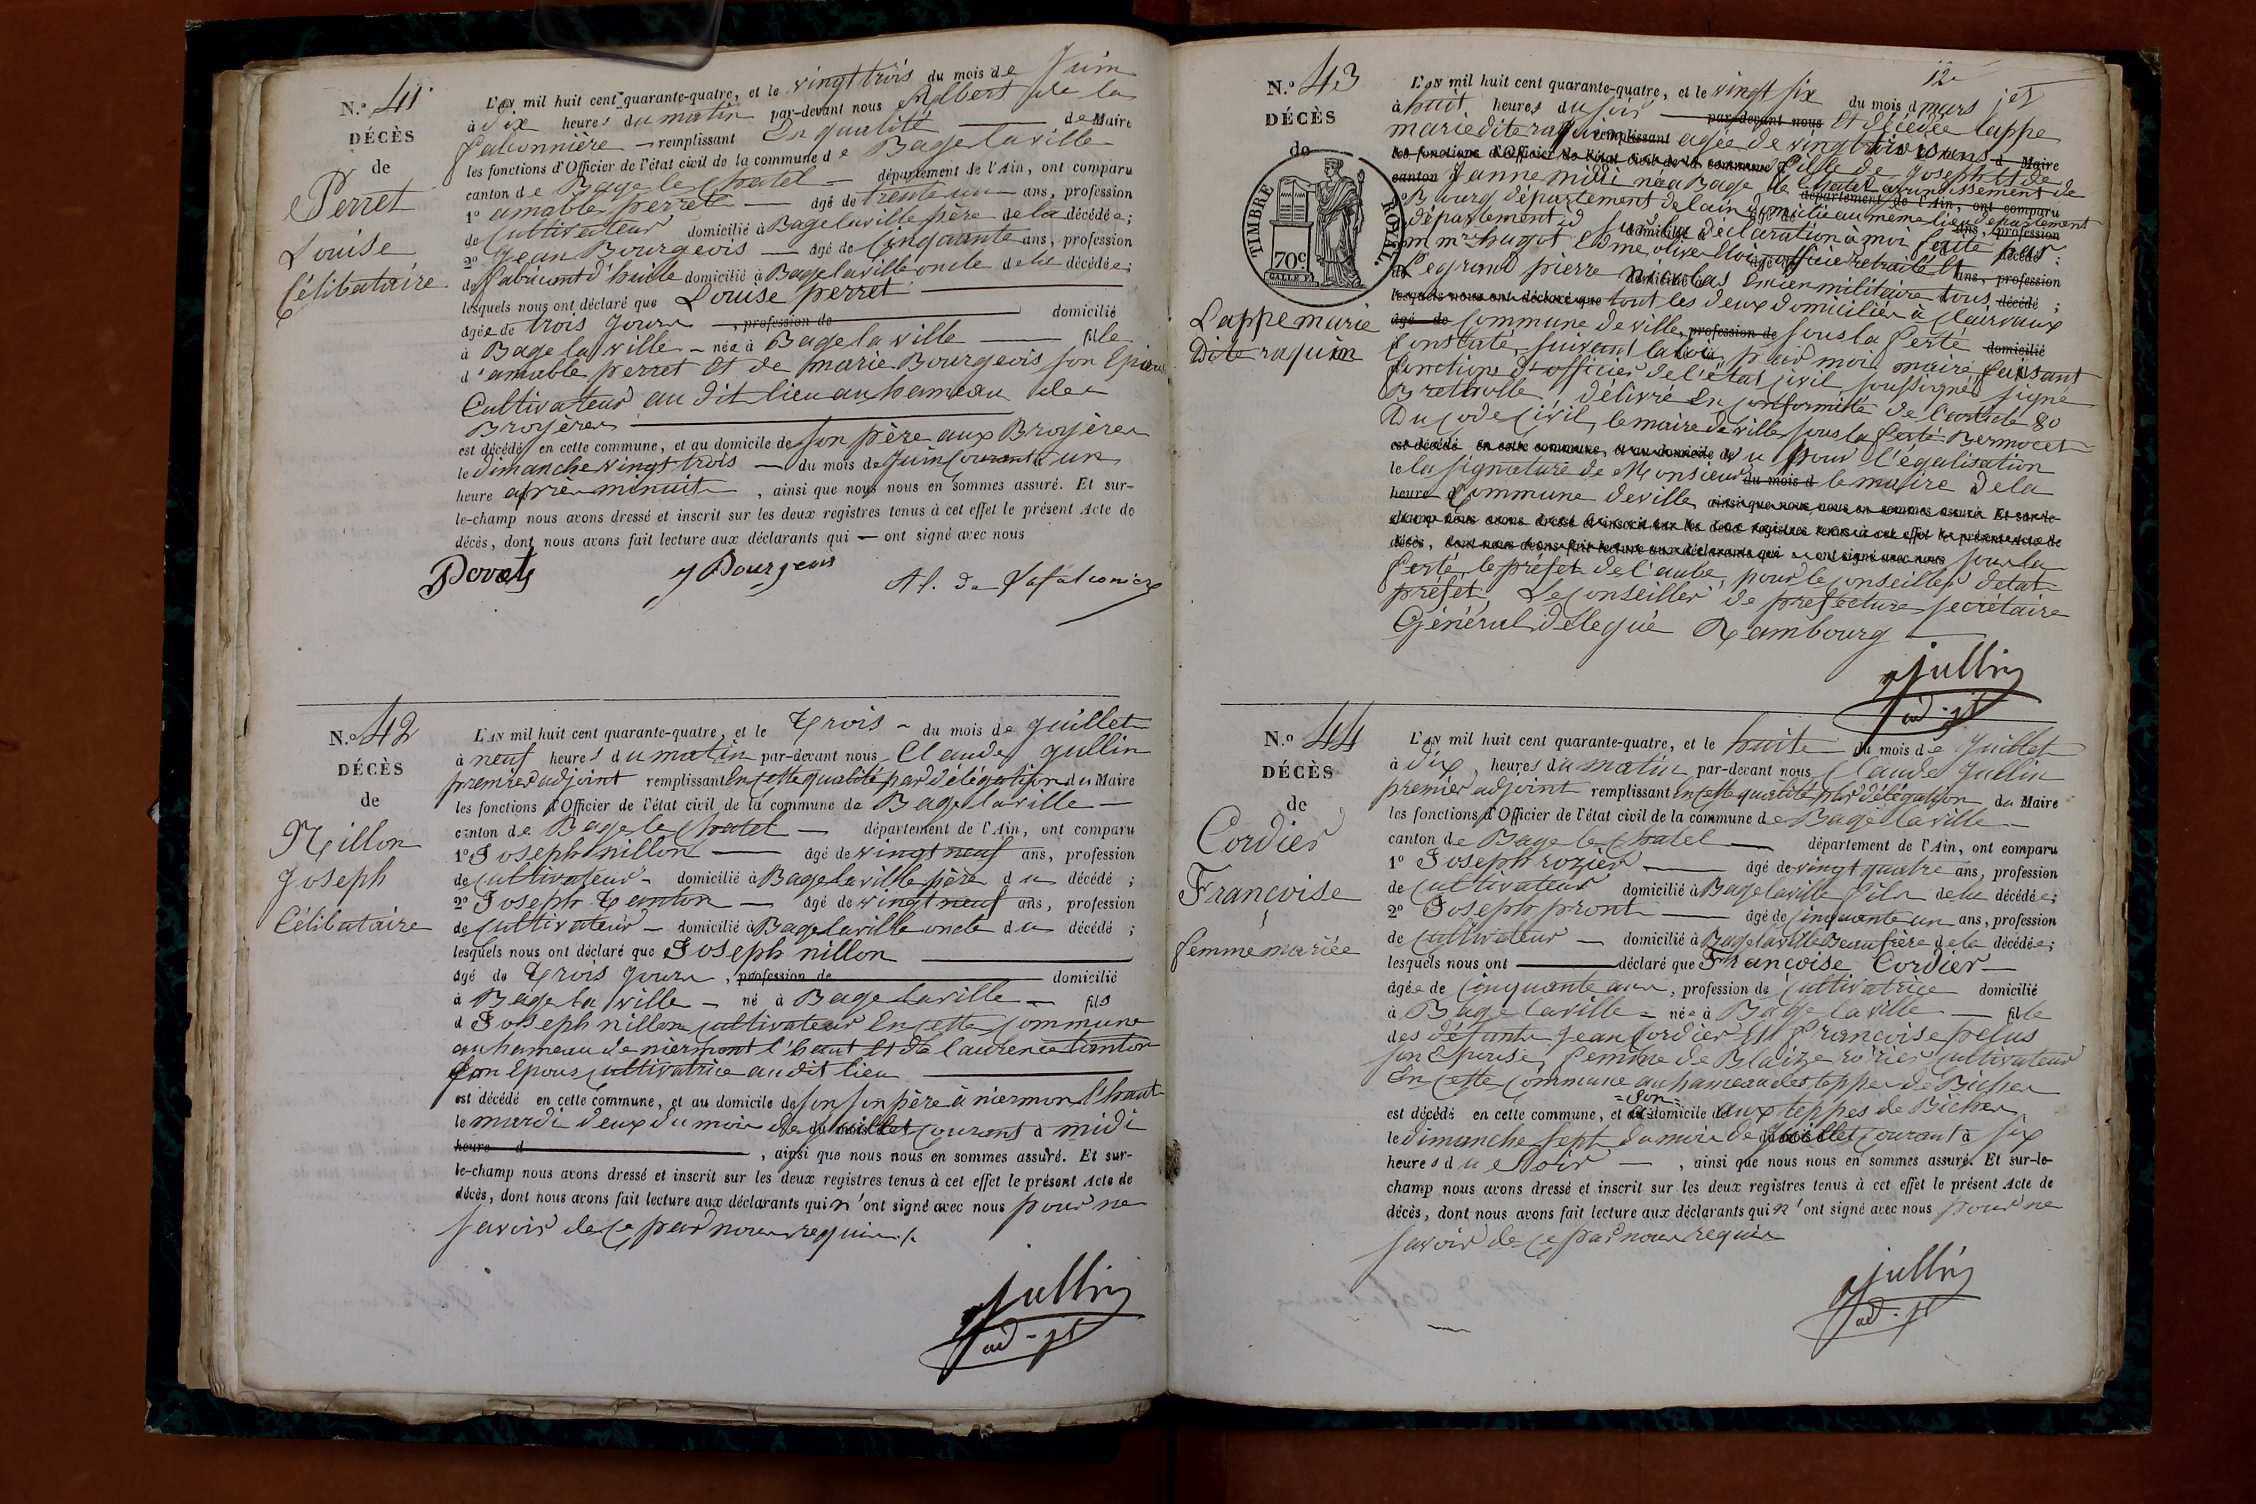 N.o 41
DÉCÈS
de
Perret
Louise
Célibataire
L'AN mil huit cent quarante-quatre, et le vingt trois du mois de Juin
à dix heures du matin par-devant nous Albert de la
falconnière remplissant En qualité de Maire
les fonctions d'Officier de l'état civil de la commune de Bagé la ville
canton de Bagé le Chatel département de l'Ain, ont comparu
1o amable perret âgé de trente un ans, profession
de Cultivateur domicilié à Bagé la ville père de la décédée;
2o Jean Bourgeois âgé de Cinquante ans, profession
de fabricant d'huile domicilié à Bagé la ville oncle de la décédée;
lesquels nous ont déclaré que Louise perret
agée de trois Jours , profession de domicilié
à Bagé la ville née à Bagé la ville fille
d'amable perret Et de marie Bourgeois son Epouse
Cultivateur au dit lieu au hameau des
Broyères
est décédé en cette commune, et au domicile de son père aux Broyères
le dimanche vingt trois du mois de Juin Courant à un
heure après minuit , ainsi que nous nous en sommes assuré. Et sur-
le-champ nous avons dressé et inscrit sur les deux registres tenus à cet effet le présent Acte de
décès, dont nous avons fait lecture aux déclarants qui ont signé avec nous
J Bourgeois Al. de Lafalconiere
N.o 42
DÉCÈS
de
Nillon
Joseph
Célibataire
L'AN mil huit cent quarante-quatre, et le Trois du mois de Juillet
à neuf heures du matin par-devant nous Claude Jullin
premier adjoint remplissant En cette qualité par délégation du Maire
les fonctions d'Officier de l'état civil de la commune de Bagé la ville
canton de Bagé le Chatel département de l'Ain, ont comparu
1o Joseph nillon âgé de vingt neuf ans, profession
de Cultivateur domicilié à Bagé la ville père du décédé ;
2o Joseph Tanton âgé de vingt neuf ans, profession
de Cultivateur domicilié à Bagé la ville oncle du décédé ;
lesquels nous ont déclaré que Joseph nillon
agé de Trois Jours , profession de domicilié
à Bagé la ville né à Bagé la ville fils
d Joseph nillon cultivateur En cette commune
au hameau de niermont l'haut Et de laurence tanton
son Epouse cultivatrice au dit lieu
est décédé en cette commune, et au domicile de son son père à niermon l'haut
le mardi deux du mois de Juillet courant à midi
heure d , ainsi que nous nous en sommes assuré. Et sur-
le-champ nous avons dressé et inscrit sur les deux registres tenus à cet effet le présent Acte de
décès, dont nous avons fait lecture aux déclarants qui n'ont signé avec nous pour ne
savoir de ce par nous requis
Jullin
ad-jt
12e
N.o 43
DÉCÈS
de
TIMBRE ROYAL.
70c
Lappe marie
Dite raquin
L'AN mil huit cent quarante-quatre, et le vingt six du mois d mars
à huit heures du soir par-devant nous Et décédée lappe
marie dite raquin remplissant agée de vingt trois ans d Maire
les fonctions d'Officier de l'état civil de la commune fille de Joseph Et de
canton Janne midi née à Bagé le Chatel arrondissement de
Bourg département de lain domicilié au même lieu département
département de l'Ain, ont comparu
département id Sur la déclaration à moi faite par
Legrand pierre nicolas Encien militaire tous
lesquels nous ont déclaré que tout les deux domiciliés à Clairvaux
âgé de commune de ville, profession de sous la ferté domicilié
Constaté, suivant la loi, par moi maire faisant
fonctions d'officier de l'état civil soussigné signé
délivré En conformité de l'article 80
Du code civil, le maire de ville sous la ferté
est décédé en cette commune, et au domicile de vu pour l'égalisation
le la signature de Monsieur du mois d le maire de la
heure d commune de ville ainsi que nous nous en sommes assuré. Et sur-le-
champ nous avons dressé et inscrit sur les deux registres tenus à cet effet le présent Acte de
décès, dont nous avons fait lecture aux déclarants qui ont signé avec nous sous la
ferté, le préfet de l'aube, pour le conseiller detat
préfet, Le conseiller de préfecture secrétaire
Général délegué Rambourg
Jullin
ad-jt
N.o 44
DÉCÈS
de
Cordier
Françoise
femme mariée
L'AN mil huit cent quarante-quatre, et le huit du mois de Juillet
à dix heures du matin par-devant nous Claude Jullin
premier adjoint remplissant En cette qualité par délégation du Maire
les fonctions d'Officier de l'état civil de la commune de Bagé la ville
canton de Bagé le Chatel département de l'Ain, ont comparu
1o Joseph rozier âgé de vingt quatre ans, profession
de cultivateur domicilié à Bagé la ville fils de la décédée;
2o Joseph pront âgé de cinquante un ans, profession
de Cultivateur domicilié à Bagé la ville Beau frère de la décédée;
lesquels nous ont déclaré que Françoise Cordier
agée de cinquante ans, profession de Cultivatrice domicilié
à Bagé la ville née à Bagé la ville fille
des défunts Jean Cordier Et Françoise pelus
son Epouse, femme de Blaize rozier Cultivateur
En cette commune au hameau des teppes de Bicher
=son=
est décédé en cette commune, et au domicile de aux teppes de Bicher
le dimanche sept du mois de Juillet courant à six
heures du soir , ainsi que nous nous en sommes assuré. Et sur-le-
champ nous avons dressé et inscrit sur les deux registres tenus à cet effet le présent Acte de
décès, dont nous avons fait lecture aux déclarants qui n'ont signé avec nous pour ne
savoir de ce par nous requis
Jullin
ad-jt